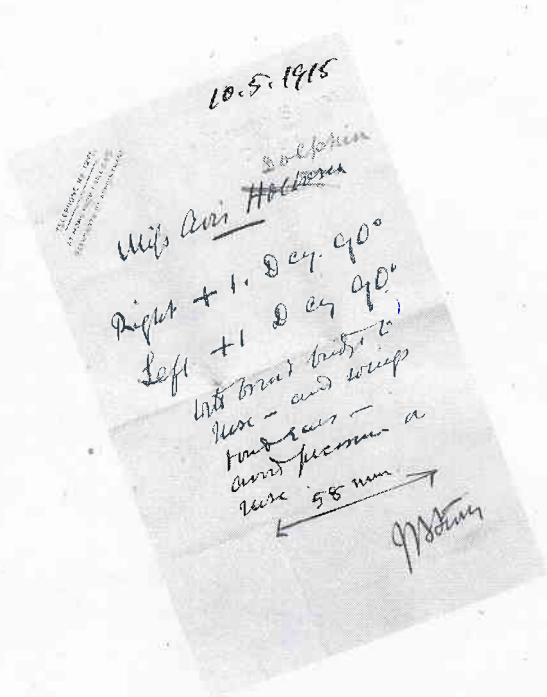 10.5.1915
TELEPHONE
Dolphin
Miss Avis Holbourn
Right + 1. D cy. 90°
Left + 1 D cy 90°
with broad bridge to
nose – and wings
round ears –
avoid pressure on
nose 58 mm.